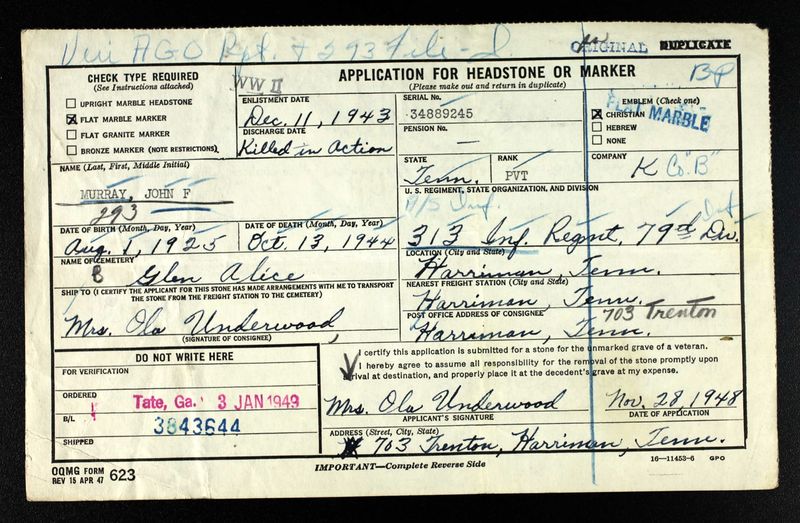 Veri AGO Rpt. + 293 File-
ORIGINAL DUPLICATE
CHECK TYPE REQUIRED
(See Instructions attached)
UPRIGHT MARBLE HEADSTONE
FLAT MARBLE MARKER
FLAT GRANITE MARKER
BRONZE MARKER (NOTE RESTRICTIONS)
WW II
APPLICATION FOR HEADSTONE OR MARKER
(Please make out and return in duplicate)
BP
ENLISTMENT DATE
Dec. 11, 1943
DISCHARGE DATE
Killed in Action
SERIAL No.
34889245
PENSION No.
—
EMBLEM (Check one)
CHRISTIAN
HEBREW
NONE
FLAT MARBLE
STATE
Tenn.
RANK
PVT
COMPANY
K Co. "B"
NAME (Last, First, Middle Initial)
MURRAY, JOHN F
293
U. S. REGIMENT, STATE ORGANIZATION, AND DIVISION
313 Inf. Regmt, 79th Div.
DATE OF BIRTH (Month, Day, Year)
Aug. 1, 1925
DATE OF DEATH (Month, Day, Year)
Oct. 13, 1944
NAME OF CEMETERY
Glen Alice
LOCATION (City and State)
Harriman, Tenn.
SHIP TO (I CERTIFY THE APPLICANT FOR THIS STONE HAS MADE ARRANGEMENTS WITH ME TO TRANSPORT
THE STONE FROM THE FREIGHT STATION TO THE CEMETERY)
Mrs. Ola Underwood,
(SIGNATURE OF CONSIGNEE)
NEAREST FREIGHT STATION (City and State)
Harriman, Tenn.
POST OFFICE ADDRESS OF CONSIGNEE
703 Trenton
Harriman, Tenn.
DO NOT WRITE HERE
FOR VERIFICATION
ORDERED
Tate, Ga. 3 JAN 1949
B/L
3843644
SHIPPED
I certify this application is submitted for a stone for the unmarked grave of a veteran.
I hereby agree to assume all responsibility for the removal of the stone promptly upon
arrival at destination, and properly place it at the decedent's grave at my expense.
Mrs. Ola Underwood
APPLICANT'S SIGNATURE
Nov. 28, 1948
DATE OF APPLICATION
ADDRESS (Street, City, State)
703 Trenton, Harriman, Tenn.
OQMG FORM
REV 15 APR 47 623
IMPORTANT—Complete Reverse Side
16—11453-6 GPO